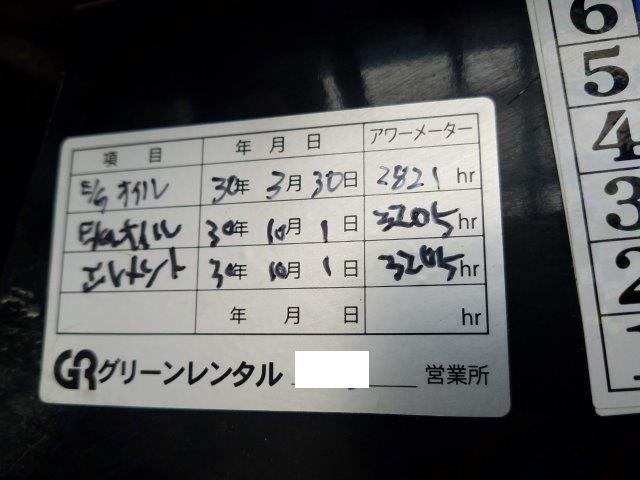 項目 年月日 アワーメーター
E/gオイル 30年 3月 30日 2821 hr
E/gオイル 30年 10月 1日 3205 hr
エレメント 30年 10月 1日 3205 hr
年 月 日 hr
GR グリーンレンタル 営業所
6
5
4
3
2
1